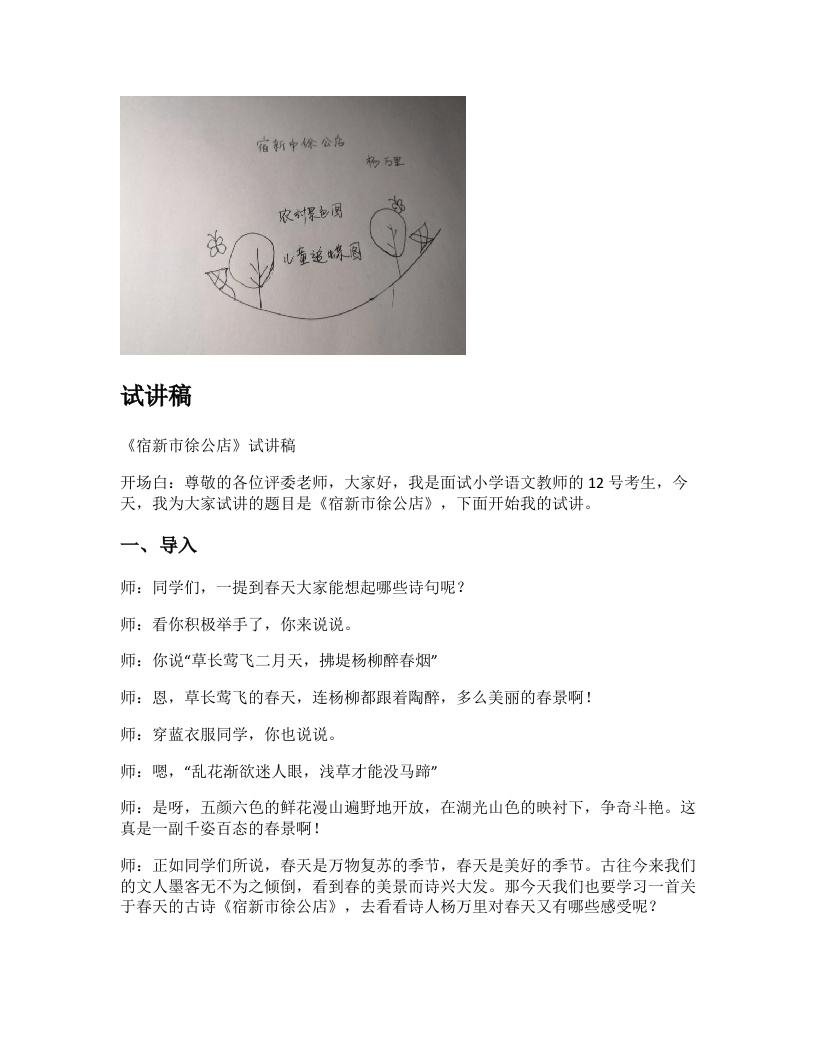 宿新市徐公店
杨万里
农村景色图
儿童追蝶图
试讲稿
《宿新市徐公店》试讲稿
开场白：尊敬的各位评委老师，大家好，我是面试小学语文教师的 12 号考生，今
天，我为大家试讲的题目是《宿新市徐公店》，下面开始我的试讲。
一、导入
师：同学们，一提到春天大家能想起哪些诗句呢？
师：看你积极举手了，你来说说。
师：你说“草长莺飞二月天，拂堤杨柳醉春烟”
师：恩，草长莺飞的春天，连杨柳都跟着陶醉，多么美丽的春景啊！
师：穿蓝衣服同学，你也说说。
师：嗯，“乱花渐欲迷人眼，浅草才能没马蹄”
师：是呀，五颜六色的鲜花漫山遍野地开放，在湖光山色的映衬下，争奇斗艳。这
真是一副千姿百态的春景啊！
师：正如同学们所说，春天是万物复苏的季节，春天是美好的季节。古往今来我们
的文人墨客无不为之倾倒，看到春的美景而诗兴大发。那今天我们也要学习一首关
于春天的古诗《宿新市徐公店》，去看看诗人杨万里对春天又有哪些感受呢？